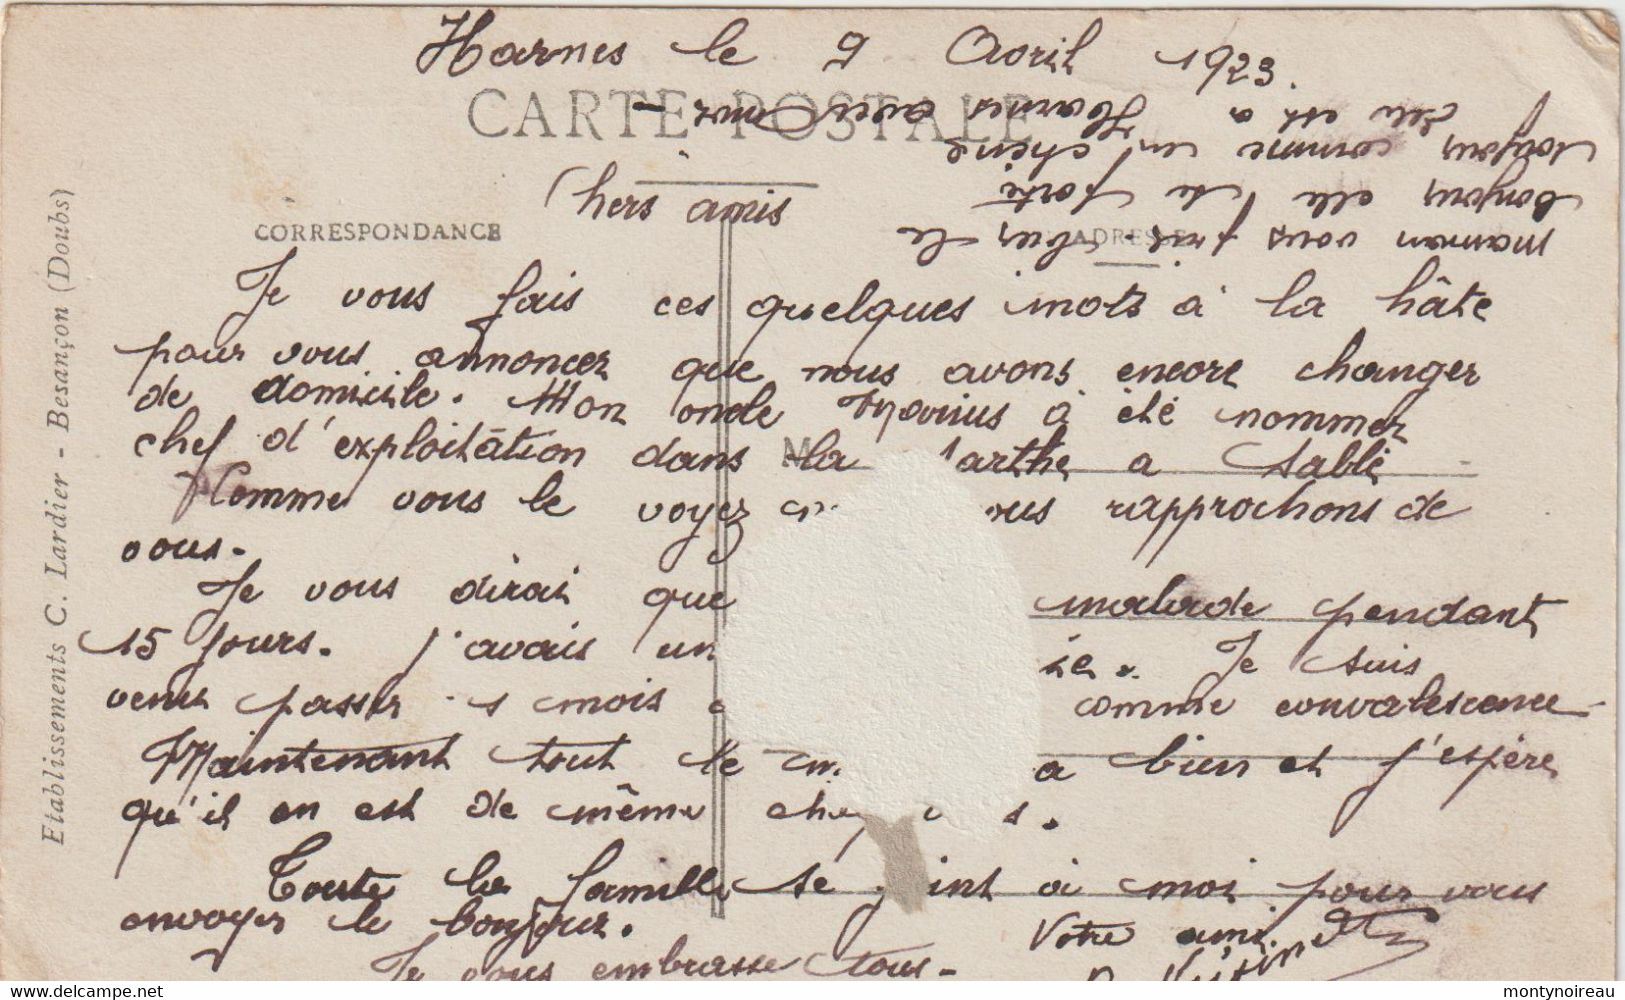 Harnes le 9 Avril 1923.
CARTE POSTALE
Chers amis
CORRESPONDANCE
ADRESSE
Je vous fais ces quelques mots à la hâte
pour vous annoncer que nous avons encore changer
de domicile. Mon oncle Marius à été nommer
chef d'exploitation dans la Sarthe a Sablé
Comme vous le voyez ous rapprochons de
vous.
Je vous dirai que malade pendant
15 jours. j'avais un ie. Je suis
venir passer s mois comme convalescence
Maintenant tout le a bien et j'espère
qu'il en est de même chez s.
Toute la famille se joint à moi pour vous
envoyer le bonjour. Votre ami
Je vous embrasse tous.
maman vous fait le
bonjour elle se porte
toujours comme un chêne
elle est a Harnes avec
Etablissements C. Lardier - Besançon (Doubs)
delcampe.net
montynoireau